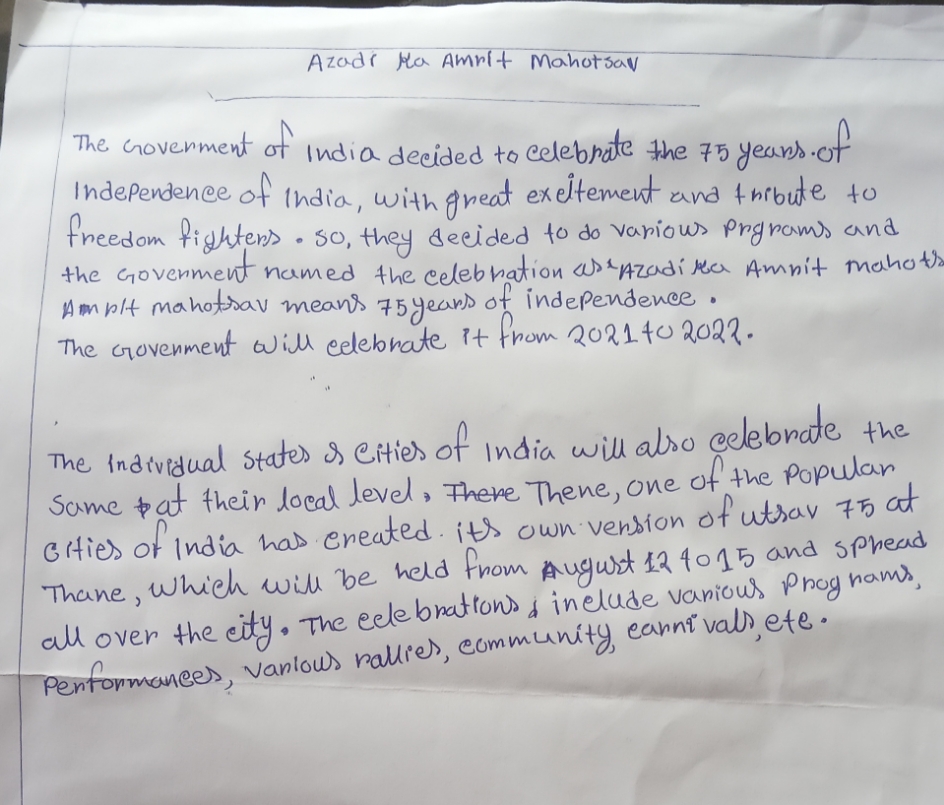 Azadi Ka Amrit Mahotsav
The Goverment of India decided to celebrate the 75 years of
Independence of India, with great excitement and tribute to
freedom fighters. so, they decided to do various Prgrams and
the Goverment named the celebration as "Azadi Ka Amrit mahots
Amrit mahotsav means 75 years of independence.
The Goverment will celebrate it from 2021 to 2022.
The Individual states & Cities of India will also celebrate the
Same at their local level, There Thene, one of the Popular
Cities of India has created. its own version of utsav 75 at
Thane, which will be held from August 12 to 15 and spread
all over the city. The celebrations include various Programs,
Performances, various rallies, community, carnivals, etc.